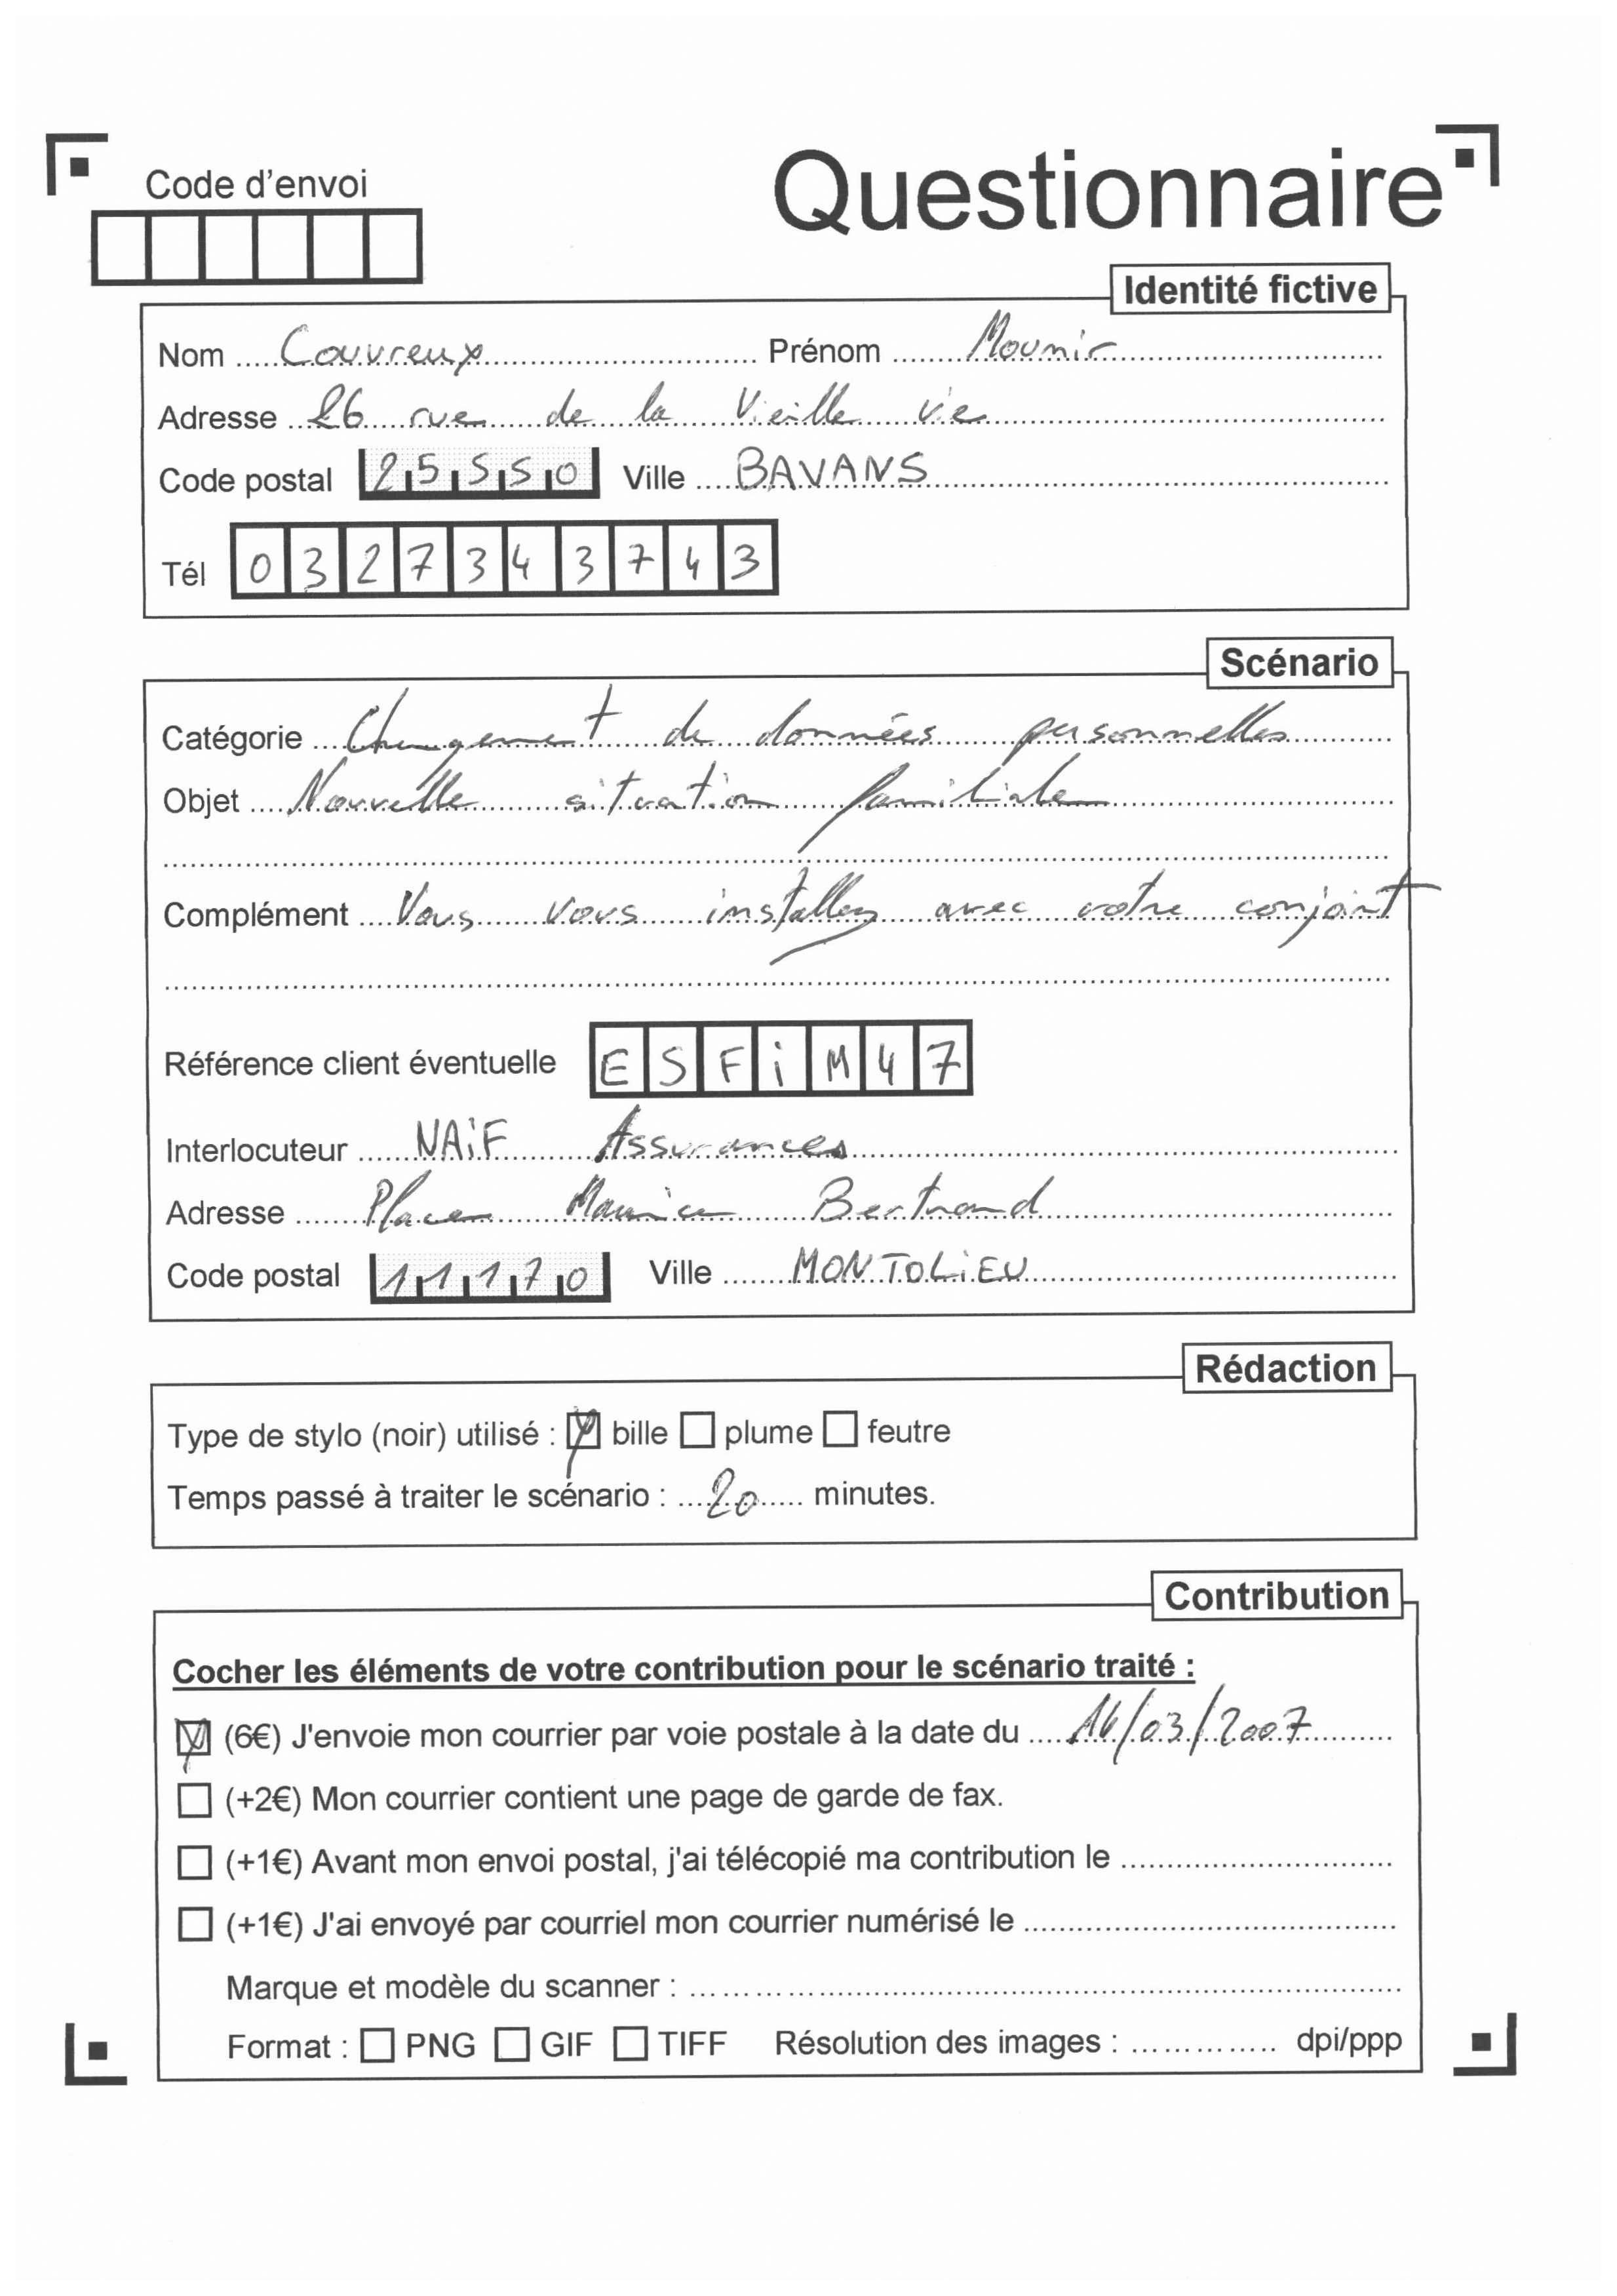 Code d'envoi
Questionnaire
Identité fictive
Nom Couvreux Prénom Mounir
Adresse 26 rue de la Vieille vie
Code postal 25550 Ville BAVANS
Tél 0327343743
Scénario
Catégorie Changement de données personnelles
Objet Nouvelle situation familiale
Complément Vous vous installez avec votre conjoint
Référence client éventuelle ESFiM47
Interlocuteur NAiF Assurances
Adresse Place Maurice Bertrand
Code postal 11170 Ville MONTOLiEU
Rédaction
Type de stylo (noir) utilisé : bille plume feutre
Temps passé à traiter le scénario : 20 minutes.
Contribution
Cocher les éléments de votre contribution pour le scénario traité :
(6€) J'envoie mon courrier par voie postale à la date du 16/03/2007
(+2€) Mon courrier contient une page de garde de fax.
(+1€) Avant mon envoi postal, j'ai télécopié ma contribution le
(+1€) J'ai envoyé par courriel mon courrier numérisé le
Marque et modèle du scanner :
Format : PNG GIF TIFF Résolution des images : dpi/ppp